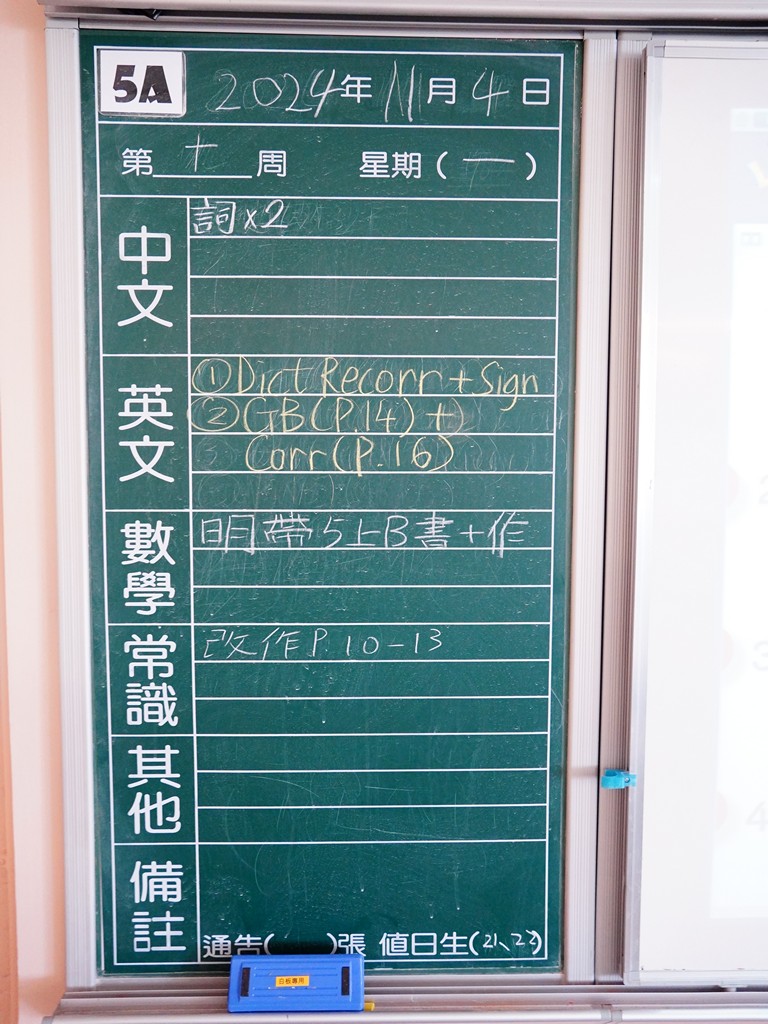 5A 2024年11月4日
第十周 星期(一)
中文 詞x2
英文 ①Dict Recorr + Sign
②GB(P.14) +
Corr(P.16)
數學 明帶5上B書+作
常識 改作P.10-13
其他
備註
通告( )張 值日生(21、22)
白板專用